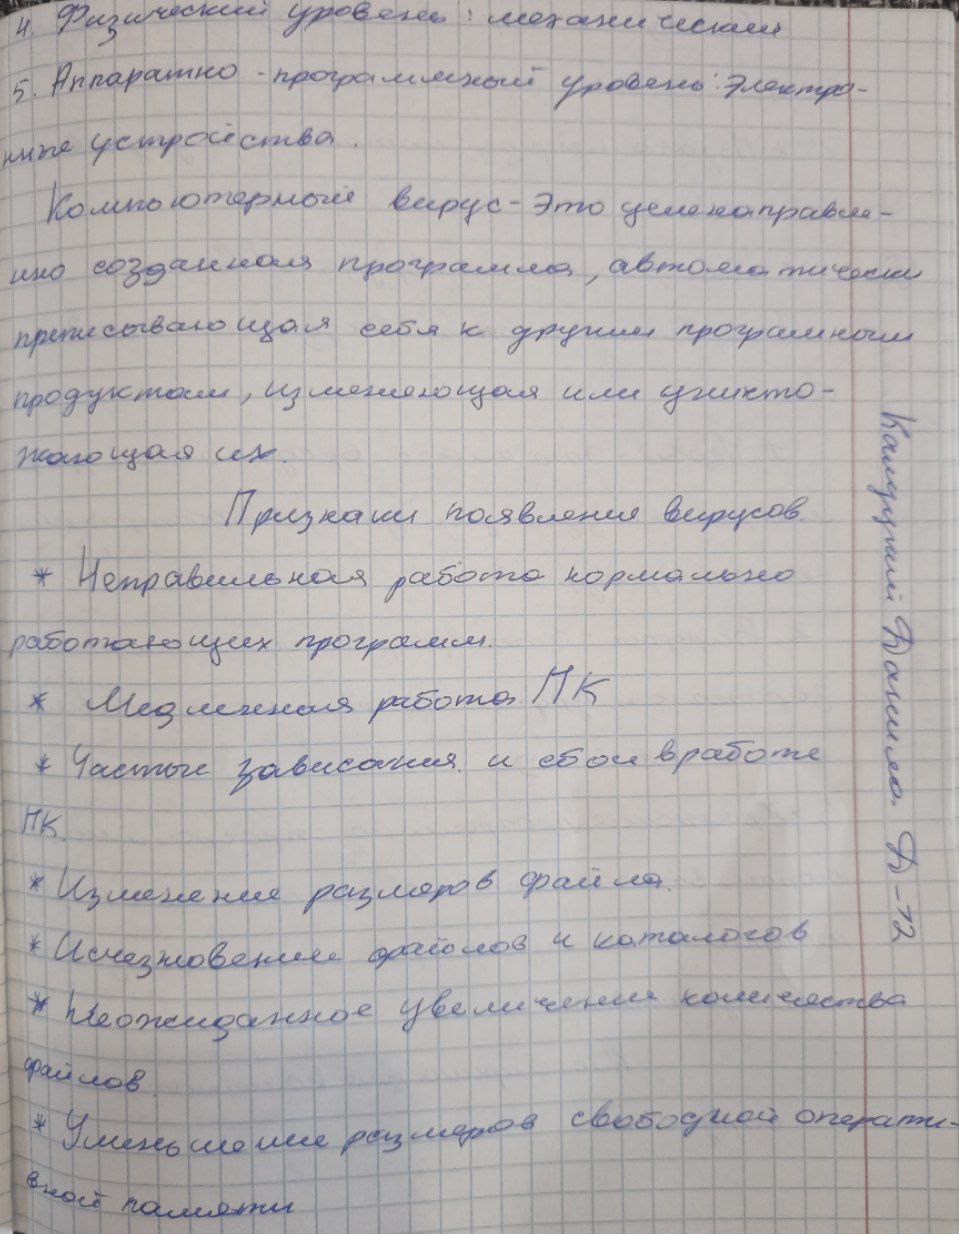 4. Физический уровень: механический
5. Аппаратно-программный уровень: Электро-
нные устройства.
Компьютерный вирус - Это целенаправле-
нно созданная программа, автоматически
преписывающая себя к другим програмным
продуктам, изменяющая или уничто-
жающая их.
Признаки появления вирусов.
* Неправильная работа нормально
работающих программ.
* Медленная работа ПК
* Частые зависания и сбои в работе
ПК.
* Изменение размеров файла.
* Исчезновение файлов и каталогов
* Неожиданное увеличение количества
файлов.
* Уменьшение размеров свободной операти-
вной памяти
Данила Д-12